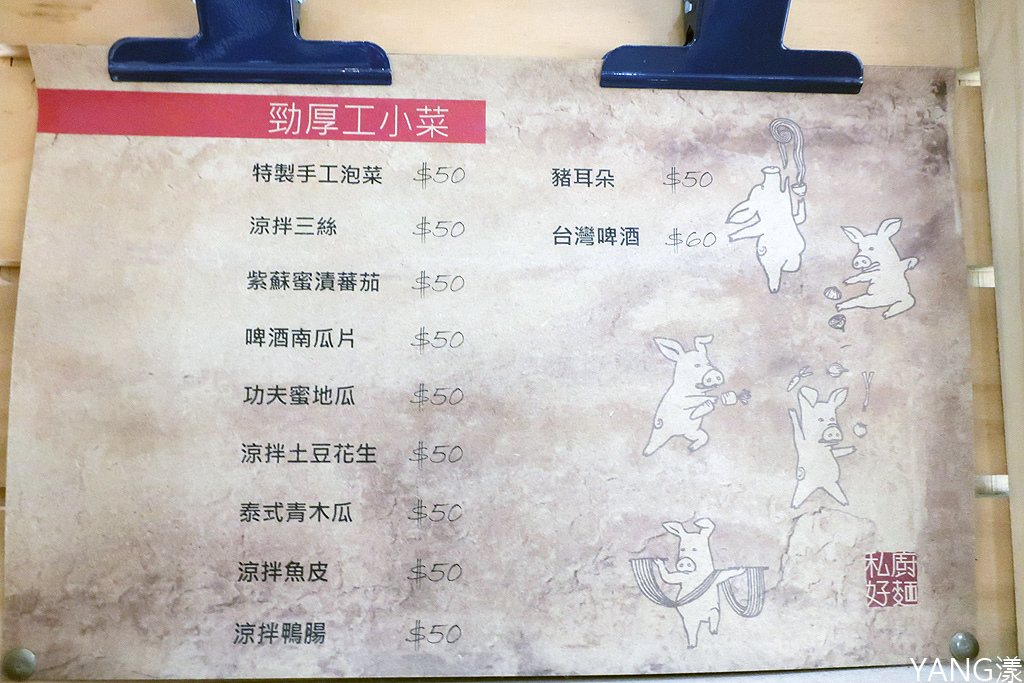 勁厚工小菜
特製手工泡菜 $50
涼拌三絲 $50
紫蘇蜜漬蕃茄 $50
啤酒南瓜片 $50
功夫蜜地瓜 $50
涼拌土豆花生 $50
泰式青木瓜 $50
涼拌魚皮 $50
涼拌鴨腸 $50
豬耳朵 $50
台灣啤酒 $60
私廚
好麵
YANG漾